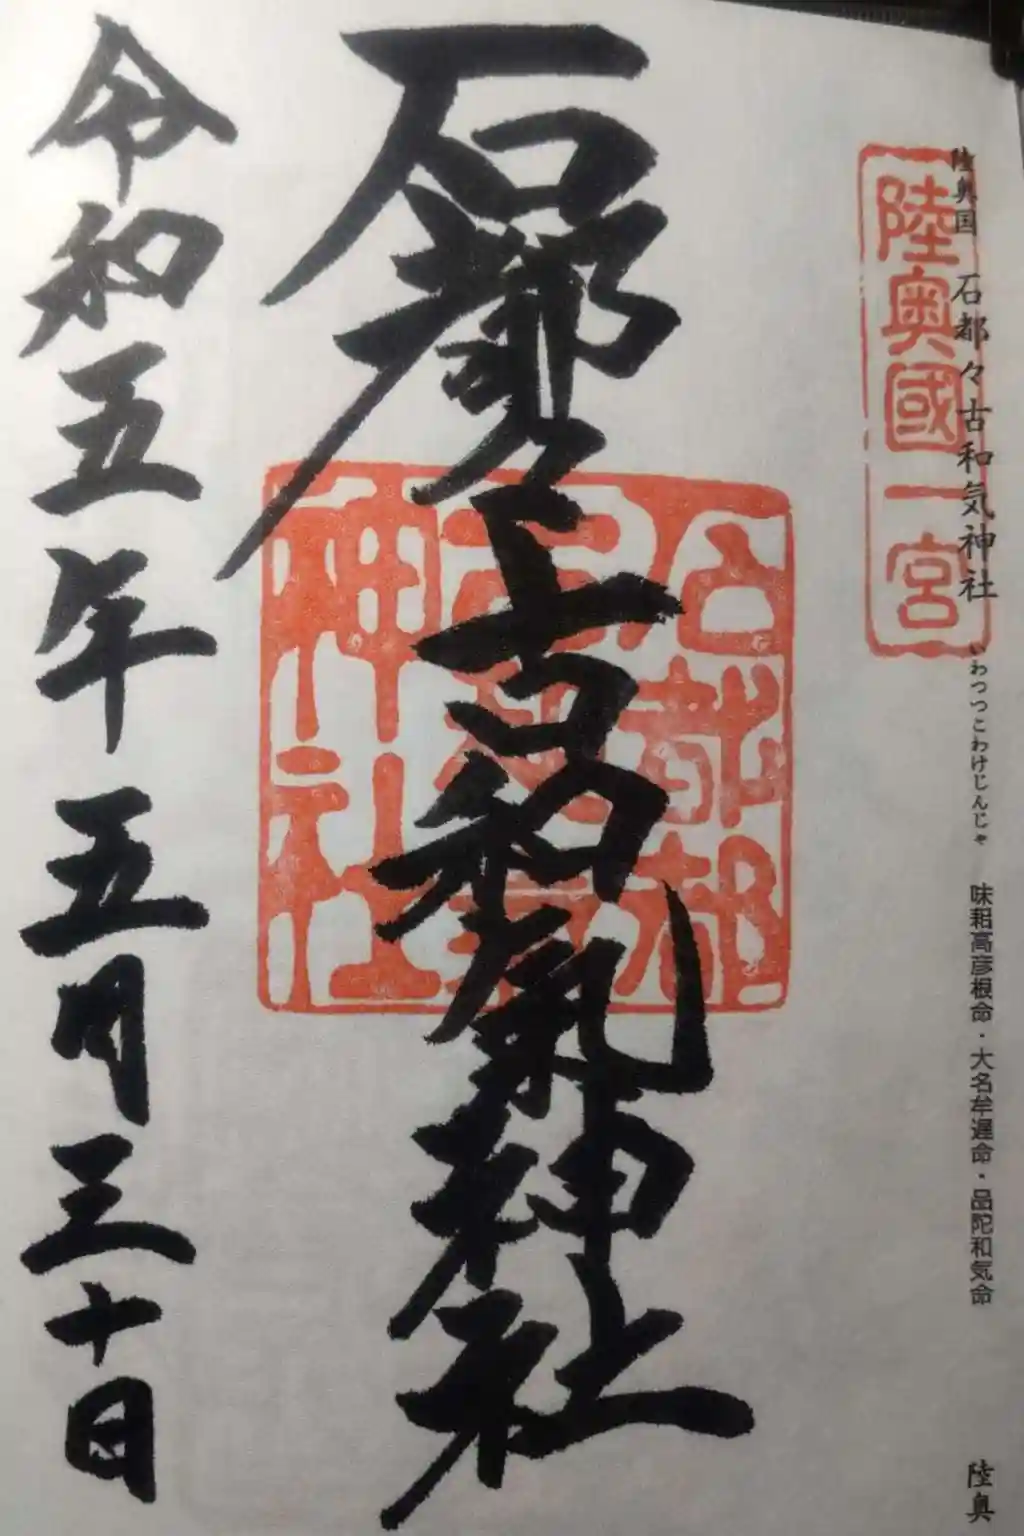 陸奥国 石都々古和気神社 いわつつこわけじんじゃ 味耜高彦根命・大名牟遅命・品陀和気命 陸奥
陸奥國一宮
石都々古和氣神社
石都都
神社
令和五年五月三十日